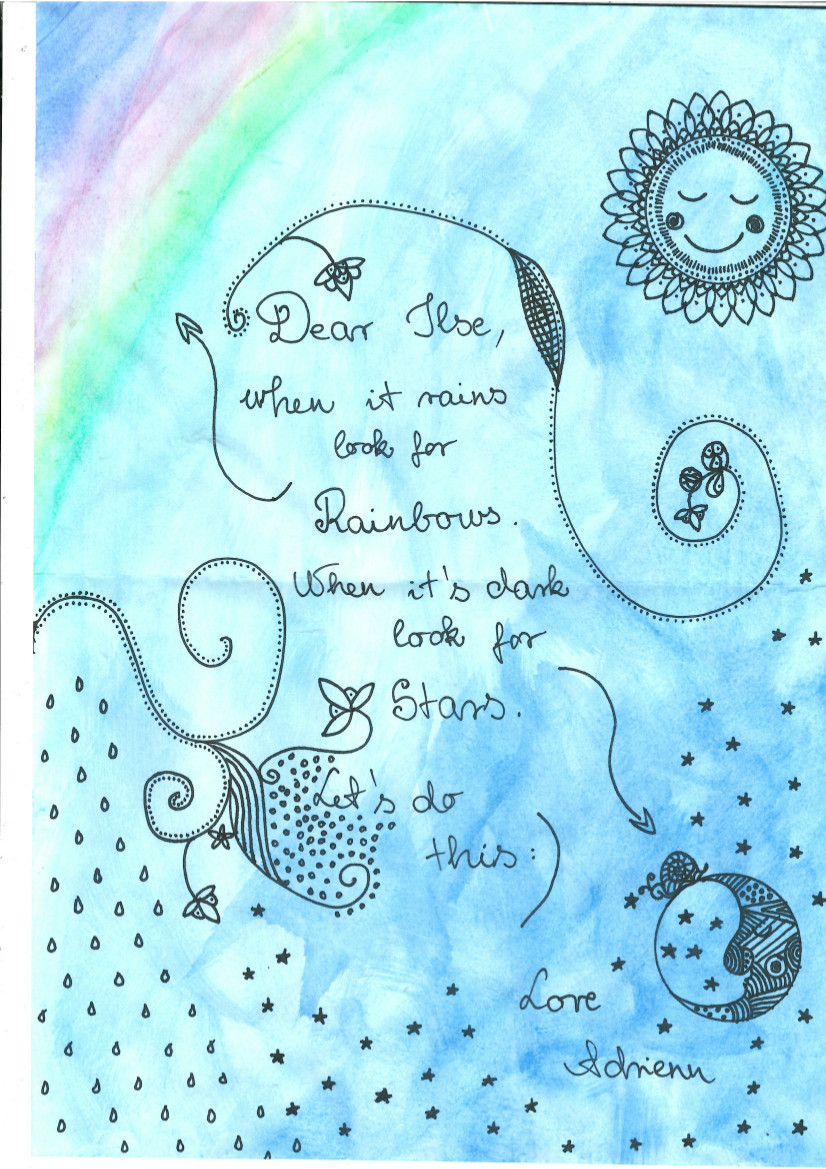 Dear Ilse,
when it rains
look for
Rainbows.
When it's dark
look for
Stars.
Let's do
this:)
Love
Adrienn